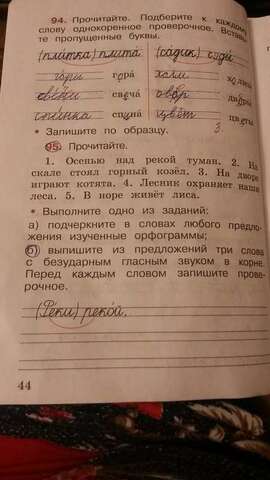 94. Прочитайте. Подберите к каждому
слову однокоренное проверочное. Вставь
те пропущенные буквы.
(плитка) плита (садик) сады
горы гора холм холмы
свечи свеча двор дворы
спинка спина цвет цветы
• Запишите по образцу. 3.
95. Прочитайте.
1. Осенью над рекой туман. 2. На
скале стоял горный козёл. 3. На дворе
играют котята. 4. Лесник охраняет наши
леса. 5. В норе живёт лиса.
• Выполните одно из заданий:
а) подчеркните в словах любого предло-
жения изученные орфограммы;
б) выпишите из предложений три слова
с безударным гласным звуком в корне.
Перед каждым словом запишите прове-
рочное.
(Реки) рекой.
44